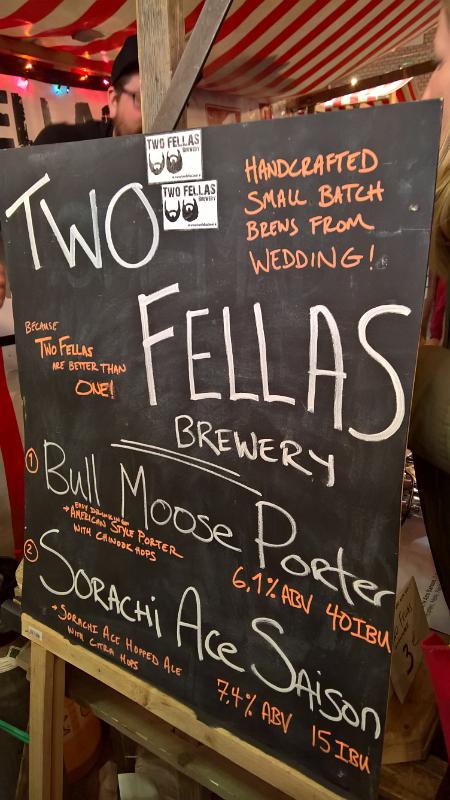 TWO FELLAS
BREWERY
TWO FELLAS
BREWERY
HANDCRAFTED
SMALL BATCH
BREWS FROM
WEDDING!
TWO
FELLAS
BREWERY
BECAUSE
TWO FELLAS
ARE BETTER THAN
ONE!
① Bull Moose Porter
→ EASY DRINKING
AMERICAN STYLE PORTER
WITH CHINOOK HOPS
6,1% ABV 40 IBU
② SORACHI ACE SAISON
→ SORACHI ACE HOPPED ALE
WITH CITRA HOPS
7,4% ABV 15 IBU
3